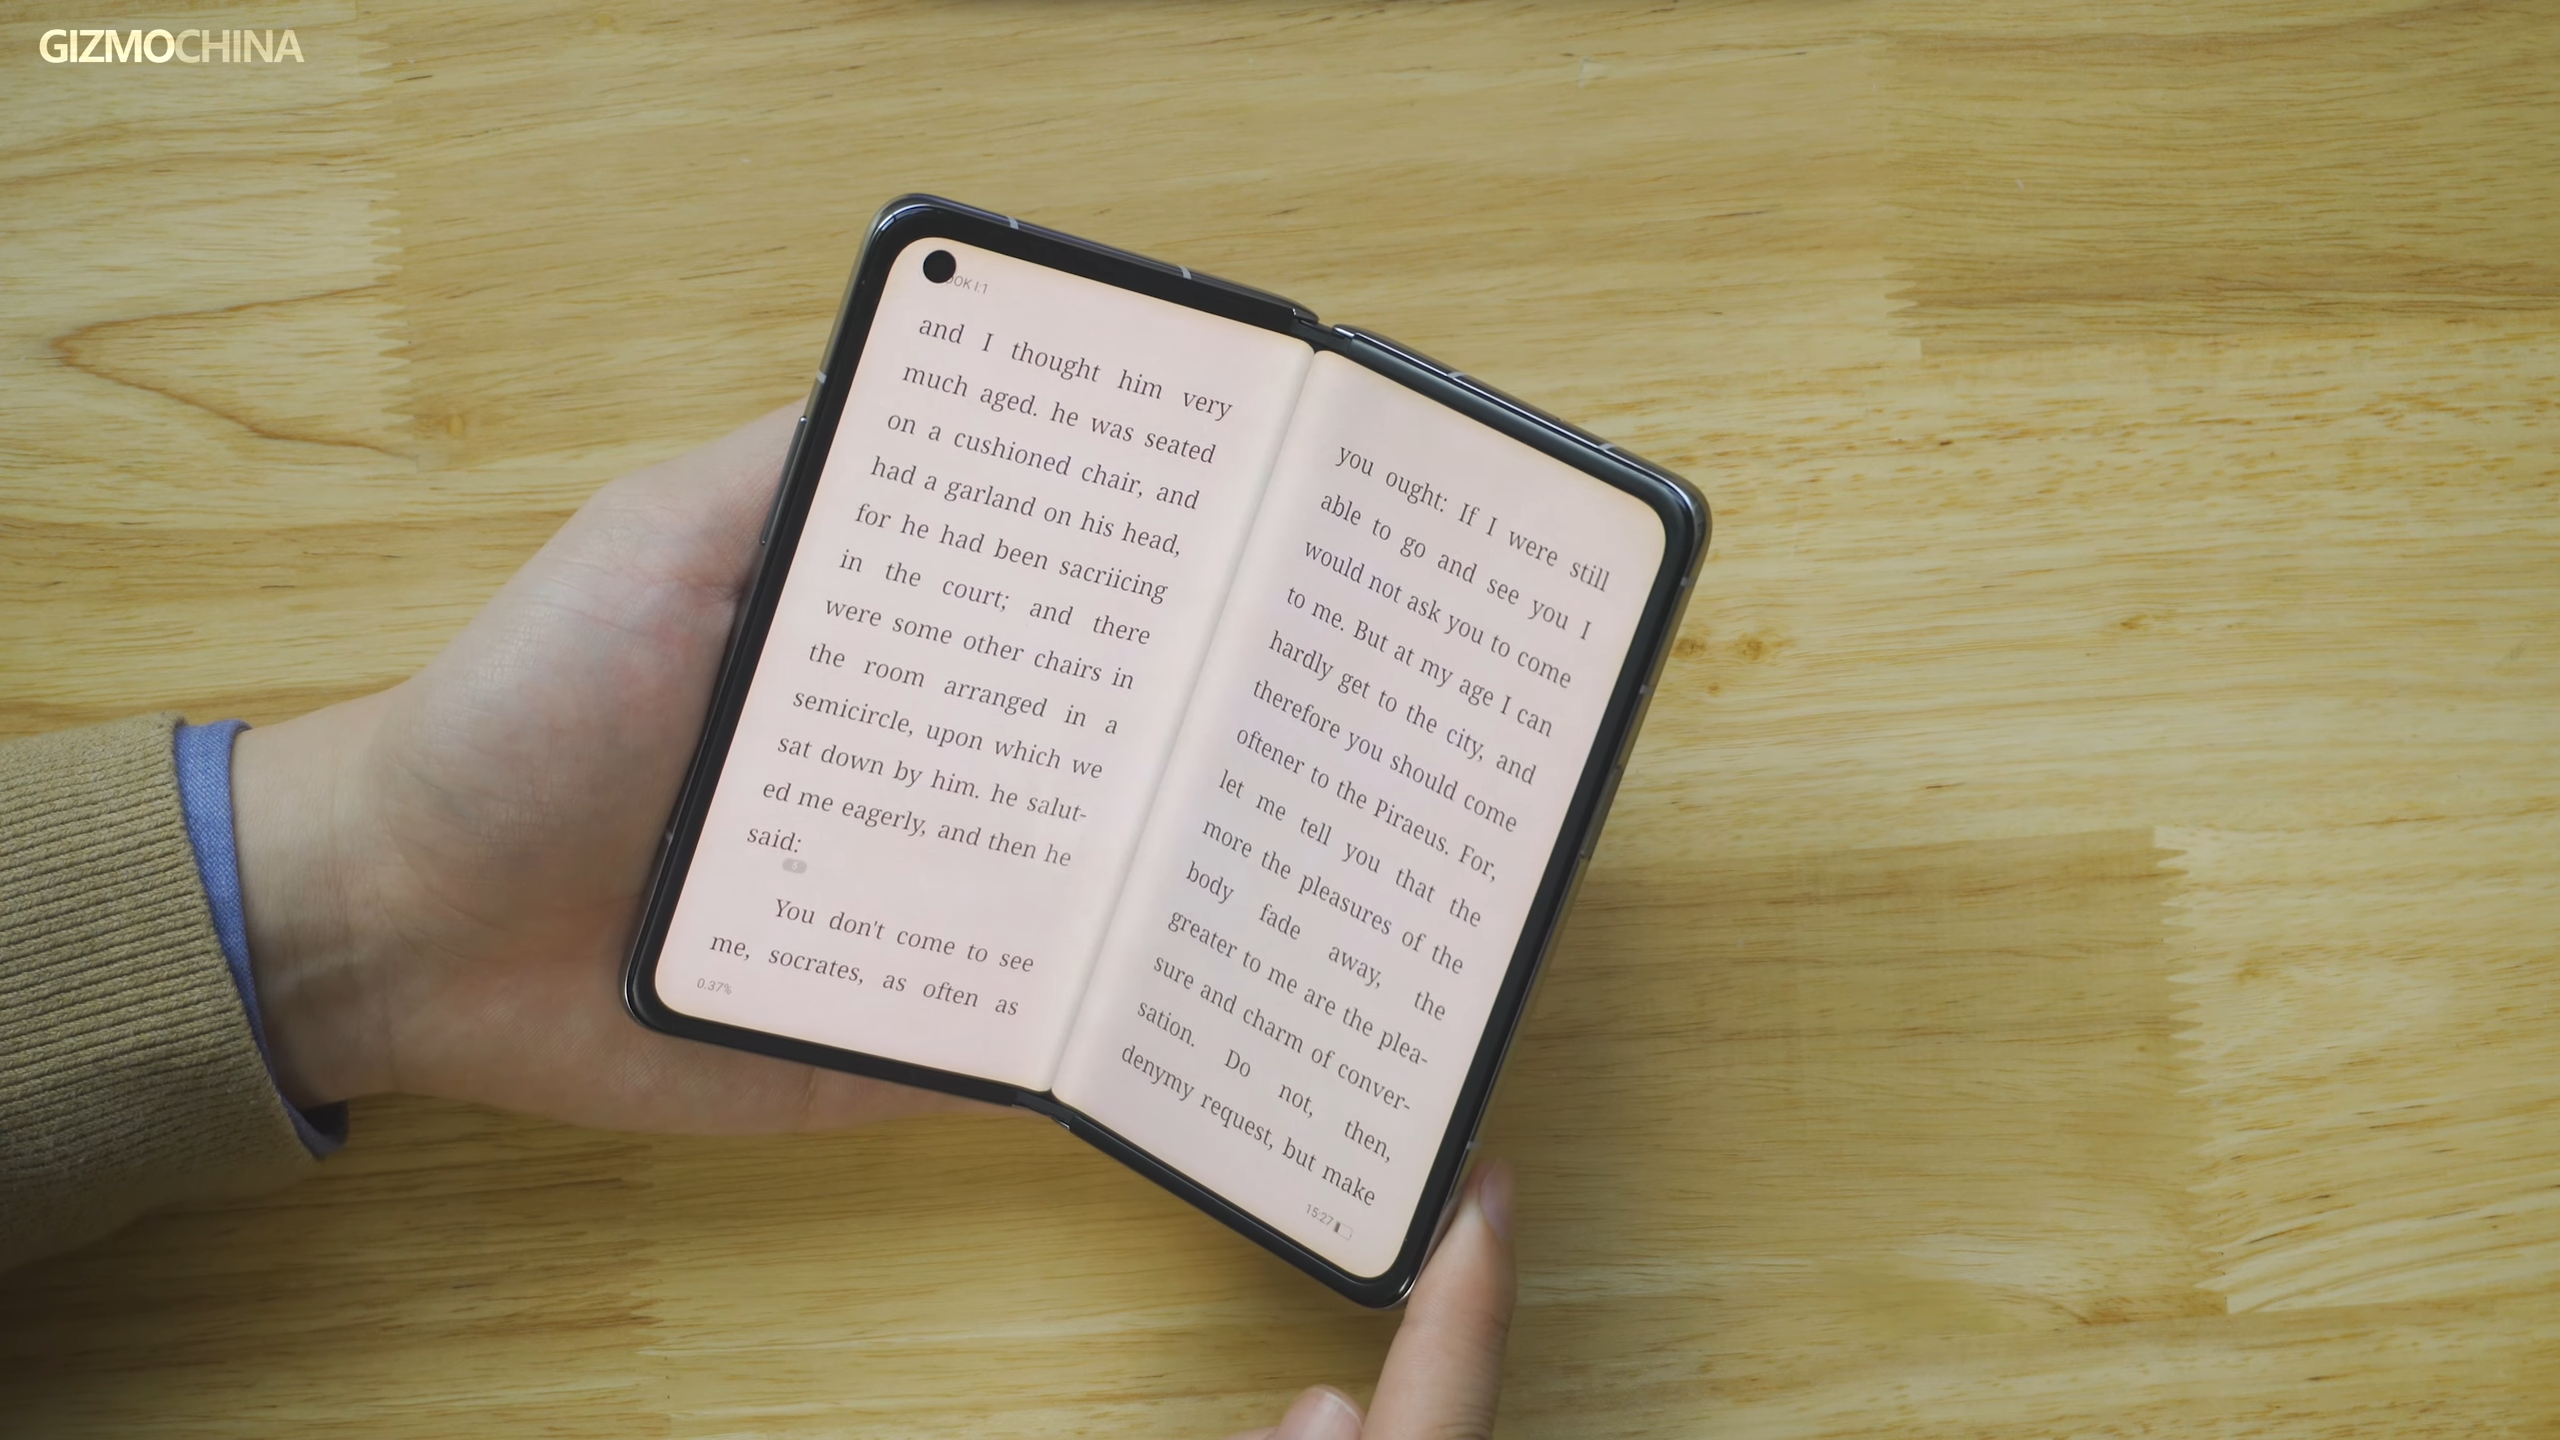 GIZMOCHINA
OOK I:1
and I thought him very
much aged. he was seated
on a cushioned chair, and
had a garland on his head,
for he had been sacriicing
in the court; and there
were some other chairs in
the room arranged in a
semicircle, upon which we
sat down by him. he salut-
ed me eagerly, and then he
said:
You don't come to see
me, socrates, as often as
0.37%
you ought: If I were still
able to go and see you I
would not ask you to come
to me. But at my age I can
hardly get to the city, and
therefore you should come
oftener to the Piraeus. For,
let me tell you that the
more the pleasures of the
body fade away, the
greater to me are the plea-
sure and charm of conver-
sation. Do not, then,
denymy request, but make
15:27